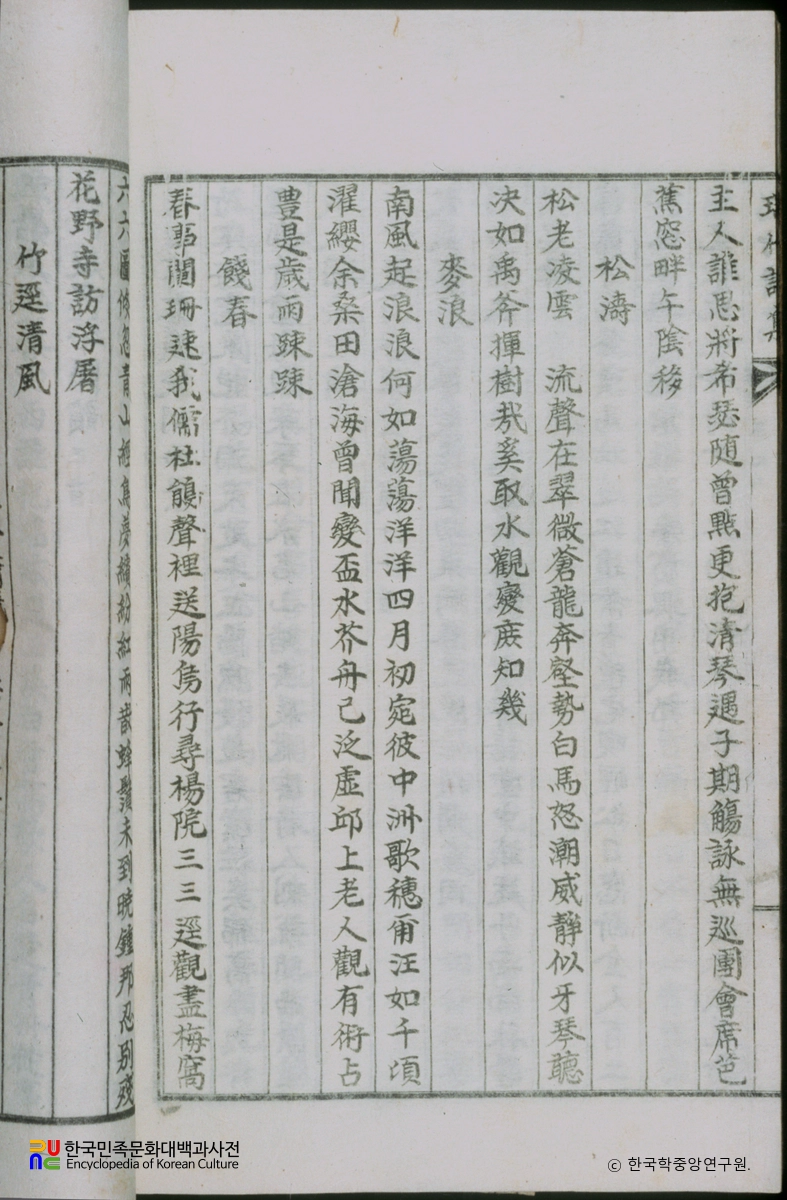 主人誰思將希瑟随曾㸃更抱清琴遇子期觴詠無巡團會席芭
蕉窓畔午陰移
松濤
松老凌雲 流聲在翠微蒼龍奔壑勢白馬怒潮威静似牙琴聽
决如禹斧揮樹㢤奚取水觀變庶知幾
麥浪
南風起浪浪何如蕩蕩洋洋四月初宛彼中洲歌穗甫汪如千頃
濯纓余桑田滄海曾聞變盃水芥舟已泛虛邱上老人觀有術占
豊是歲雨踈踈
餞春
春事闌珊速我儒杜鵑聲裡送陽烏行尋楊院三三逕觀盡梅窩
六六圖倏忽青山經鳥夢繽紛紅雨昔蜂鬚未到曉鍾那忍别殘
花野寺訪浮屠
竹逕清風
한국민족문화대백과사전
Encyclopedia of Korean Culture
ⓒ 한국학중앙연구원.